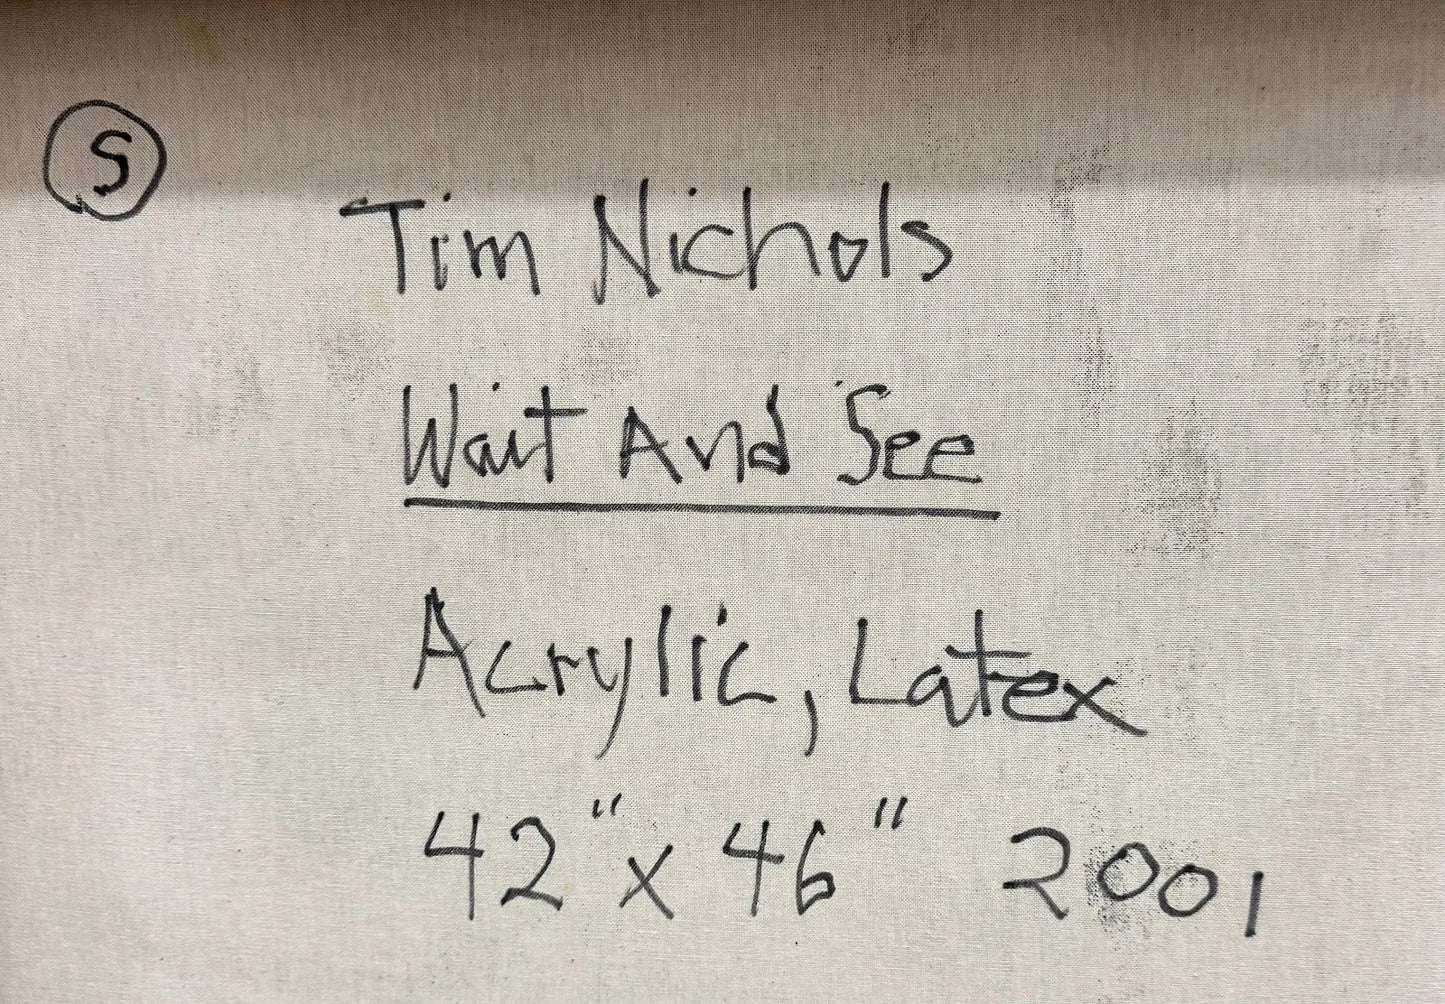 S
Tim Nichols
Wait And See
Acrylic, Latex
42" x 46" 2001